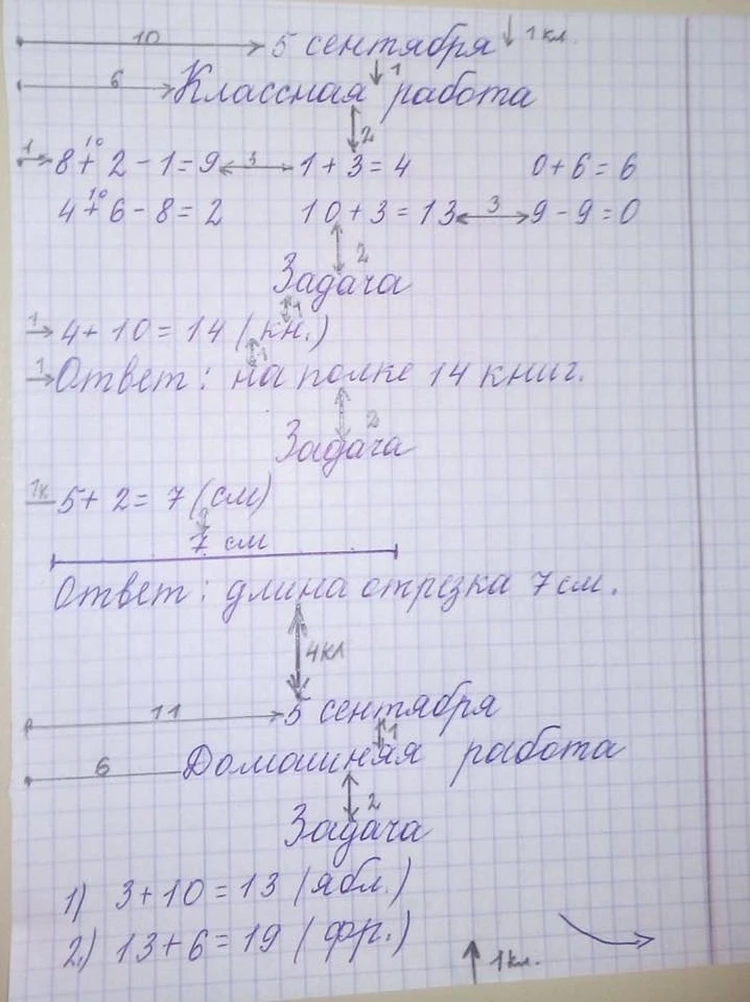 10 5 сентября 1 кл.
6 Классная 1 работа
2
1 8 + 2 - 1 = 9 3 1 + 3 = 4 0 + 6 = 6
10
4 + 6 - 8 = 2 10 + 3 = 13 3 9 - 9 = 0
10
2
Задача
1
1 4 + 10 = 14 (кн.)
1
1 Ответ: на полке 14 книг.
2
Задача
1к 5 + 2 = 7 (см)
7 см
Ответ: длина отрезка 7 см.
4кл
11 5 сентября
1
6 Домашняя работа
2
Задача
1) 3 + 10 = 13 (ябл.)
2.) 13 + 6 = 19 (фр.)
1кл.